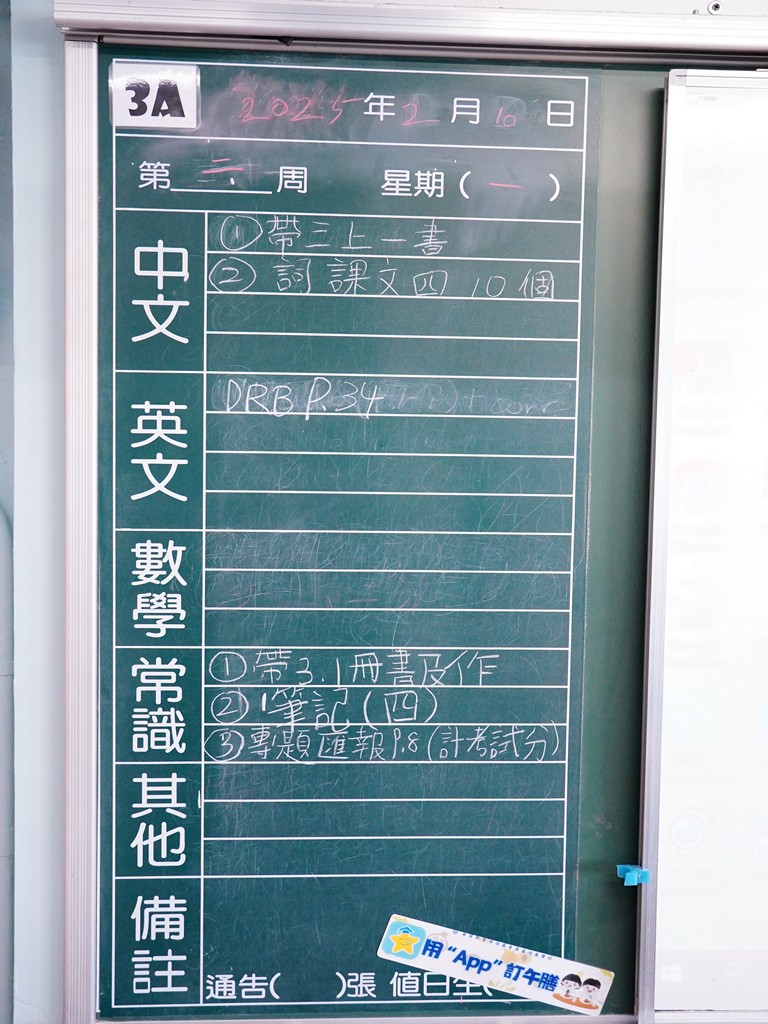 3A 2025年2月10日
第二周 星期(一)
中文
①帶三上一書
②詞 課文四 10個
英文
DRB P.34
數學
常識
①帶3.1冊書及作
②筆記(四)
③專題匯報P.8(計考試分)
其他
備註
通告( )張 值日生(
用“App”訂午膳